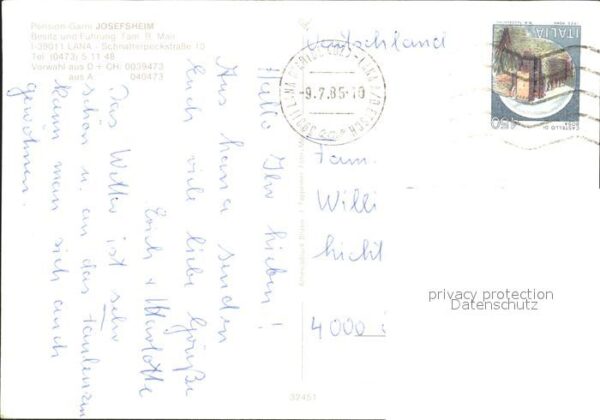 Pension-Garni JOSEFSHEIM
Besitz und Führung: Fam. R. Mair
I-39011 LANA - Schnatterpeckstraße 10
Tel (0473) 5 11 48
Vorwahl aus D + CH: 0039473
aus A 040473
Hallo Ihr Lieben!
Aus Lana senden
Euch viele liebe Grüße
Erich + Marlotte
Das Wetter ist sehr
schön u. an das Faulenzen
kann man sich auch
gewöhnen.
32451
-9.7.85-10
ITALIA
450
CASTELLO DI
Deutschland
Fam.
Willi
Licht
4000
privacy protection
Datenschutz